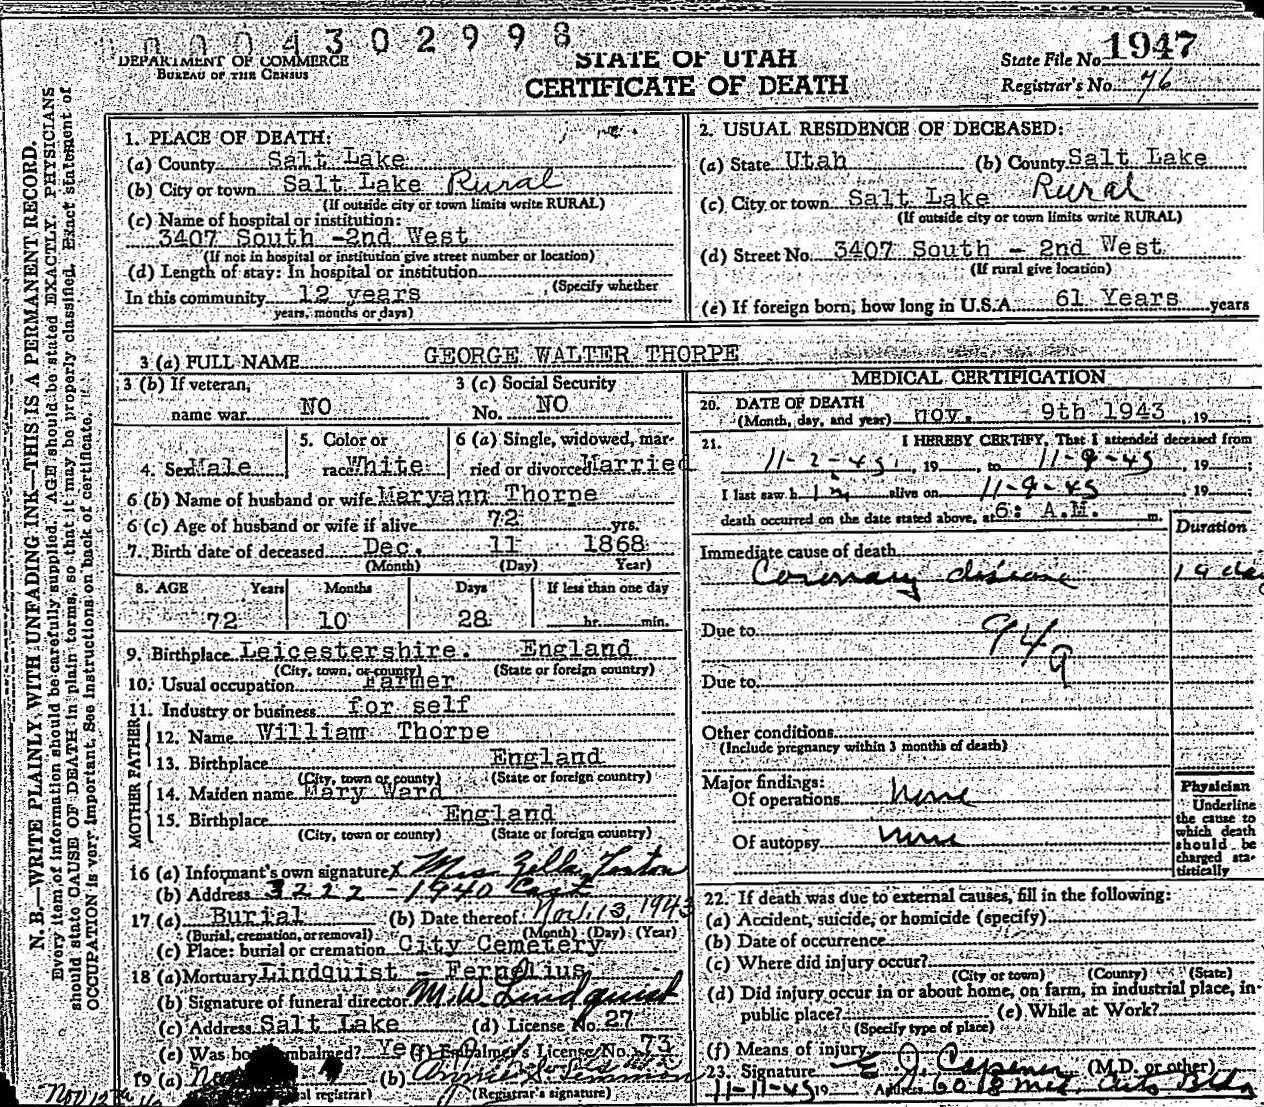 0004302998
DEPARTMENT OF COMMERCE
BUREAU OF THE CENSUS
STATE OF UTAH
CERTIFICATE OF DEATH
State File No. 1947
Registrar's No. 76
N. B.—WRITE PLAINLY, WITH UNFADING INK—THIS IS A PERMANENT RECORD.
Every item of information should be carefully supplied. AGE should be stated EXACTLY. PHYSICIANS
should state CAUSE OF DEATH in plain terms, so that it may be properly classified. Exact statement of
OCCUPATION is very important. See instructions on back of certificate.
1. PLACE OF DEATH:
(a) County Salt Lake
(b) City or town Salt Lake Rural
(If outside city or town limits write RURAL)
(c) Name of hospital or institution:
3407 South -2nd West
(If not in hospital or institution give street number or location)
(d) Length of stay: In hospital or institution
(Specify whether
In this community 12 years
years, months or days)
2. USUAL RESIDENCE OF DECEASED:
(a) State Utah (b) County Salt Lake
(c) City or town Salt Lake Rural
(If outside city or town limits write RURAL)
(d) Street No. 3407 South - 2nd West
(If rural give location)
(e) If foreign born, how long in U.S.A. 61 Years years
3 (a) FULL NAME GEORGE WALTER THORPE
3 (b) If veteran, 3 (c) Social Security
name war NO No. NO
4. Sex Male 5. Color or race White 6 (a) Single, widowed, married or divorced Married
6 (b) Name of husband or wife Maryann Thorpe
6 (c) Age of husband or wife if alive 72 yrs.
7. Birth date of deceased Dec. 11 1868
(Month) (Day) Year)
8. AGE Years Months Days If less than one day
72 10 28 hr. min.
9. Birthplace Leicestershire. England
(City, town, or county) (State or foreign country)
10. Usual occupation Farmer
11. Industry or business for self
FATHER
12. Name William Thorpe
13. Birthplace England
(City, town or county) (State or foreign country)
MOTHER
14. Maiden name Mary Ward
15. Birthplace England
(City, town or county) (State or foreign country)
16 (a) Informant's own signature X Mrs.
(b) Address 3222 - 1940 East
17 (a) Burial (b) Date thereof Nov. 13, 1943
(Burial, cremation, or removal) (Month) (Day) (Year)
(c) Place: burial or cremation City Cemetery
18 (a) Mortuary Lindquist - Fernelius
(b) Signature of funeral director M.W. Lindquist
(c) Address Salt Lake (d) License No. 27
(e) Was body embalmed? Yes (f) Embalmer's License No. 73
19 (a) (b)
Nov 12th
(Registrar's signature)
MEDICAL CERTIFICATION
20. DATE OF DEATH
(Month, day, and year) nov. 9th 1943, 19
21. I HEREBY CERTIFY, That I attended deceased from
11-2-43, 19, to 11-9-43, 19;
I last saw him alive on 11-9-43, 19;
death occurred on the date stated above, at 6: A.M. m.
Duration
Immediate cause of death
Coronary disease
Due to 94a
Due to
Other conditions
(Include pregnancy within 3 months of death)
Major findings:
Of operations None
Of autopsy None
Physician
Underline
the cause to
which death
should be
charged sta-
tistically
22. If death was due to external causes, fill in the following:
(a) Accident, suicide, or homicide (specify)
(b) Date of occurrence
(c) Where did injury occur?
(City or town) (County) (State)
(d) Did injury occur in or about home, on farm, in industrial place, in
public place? (e) While at Work?
(Specify type of place)
(f) Means of injury
23. Signature E J. Capener (M.D. or other)
11-11-43 19 Address